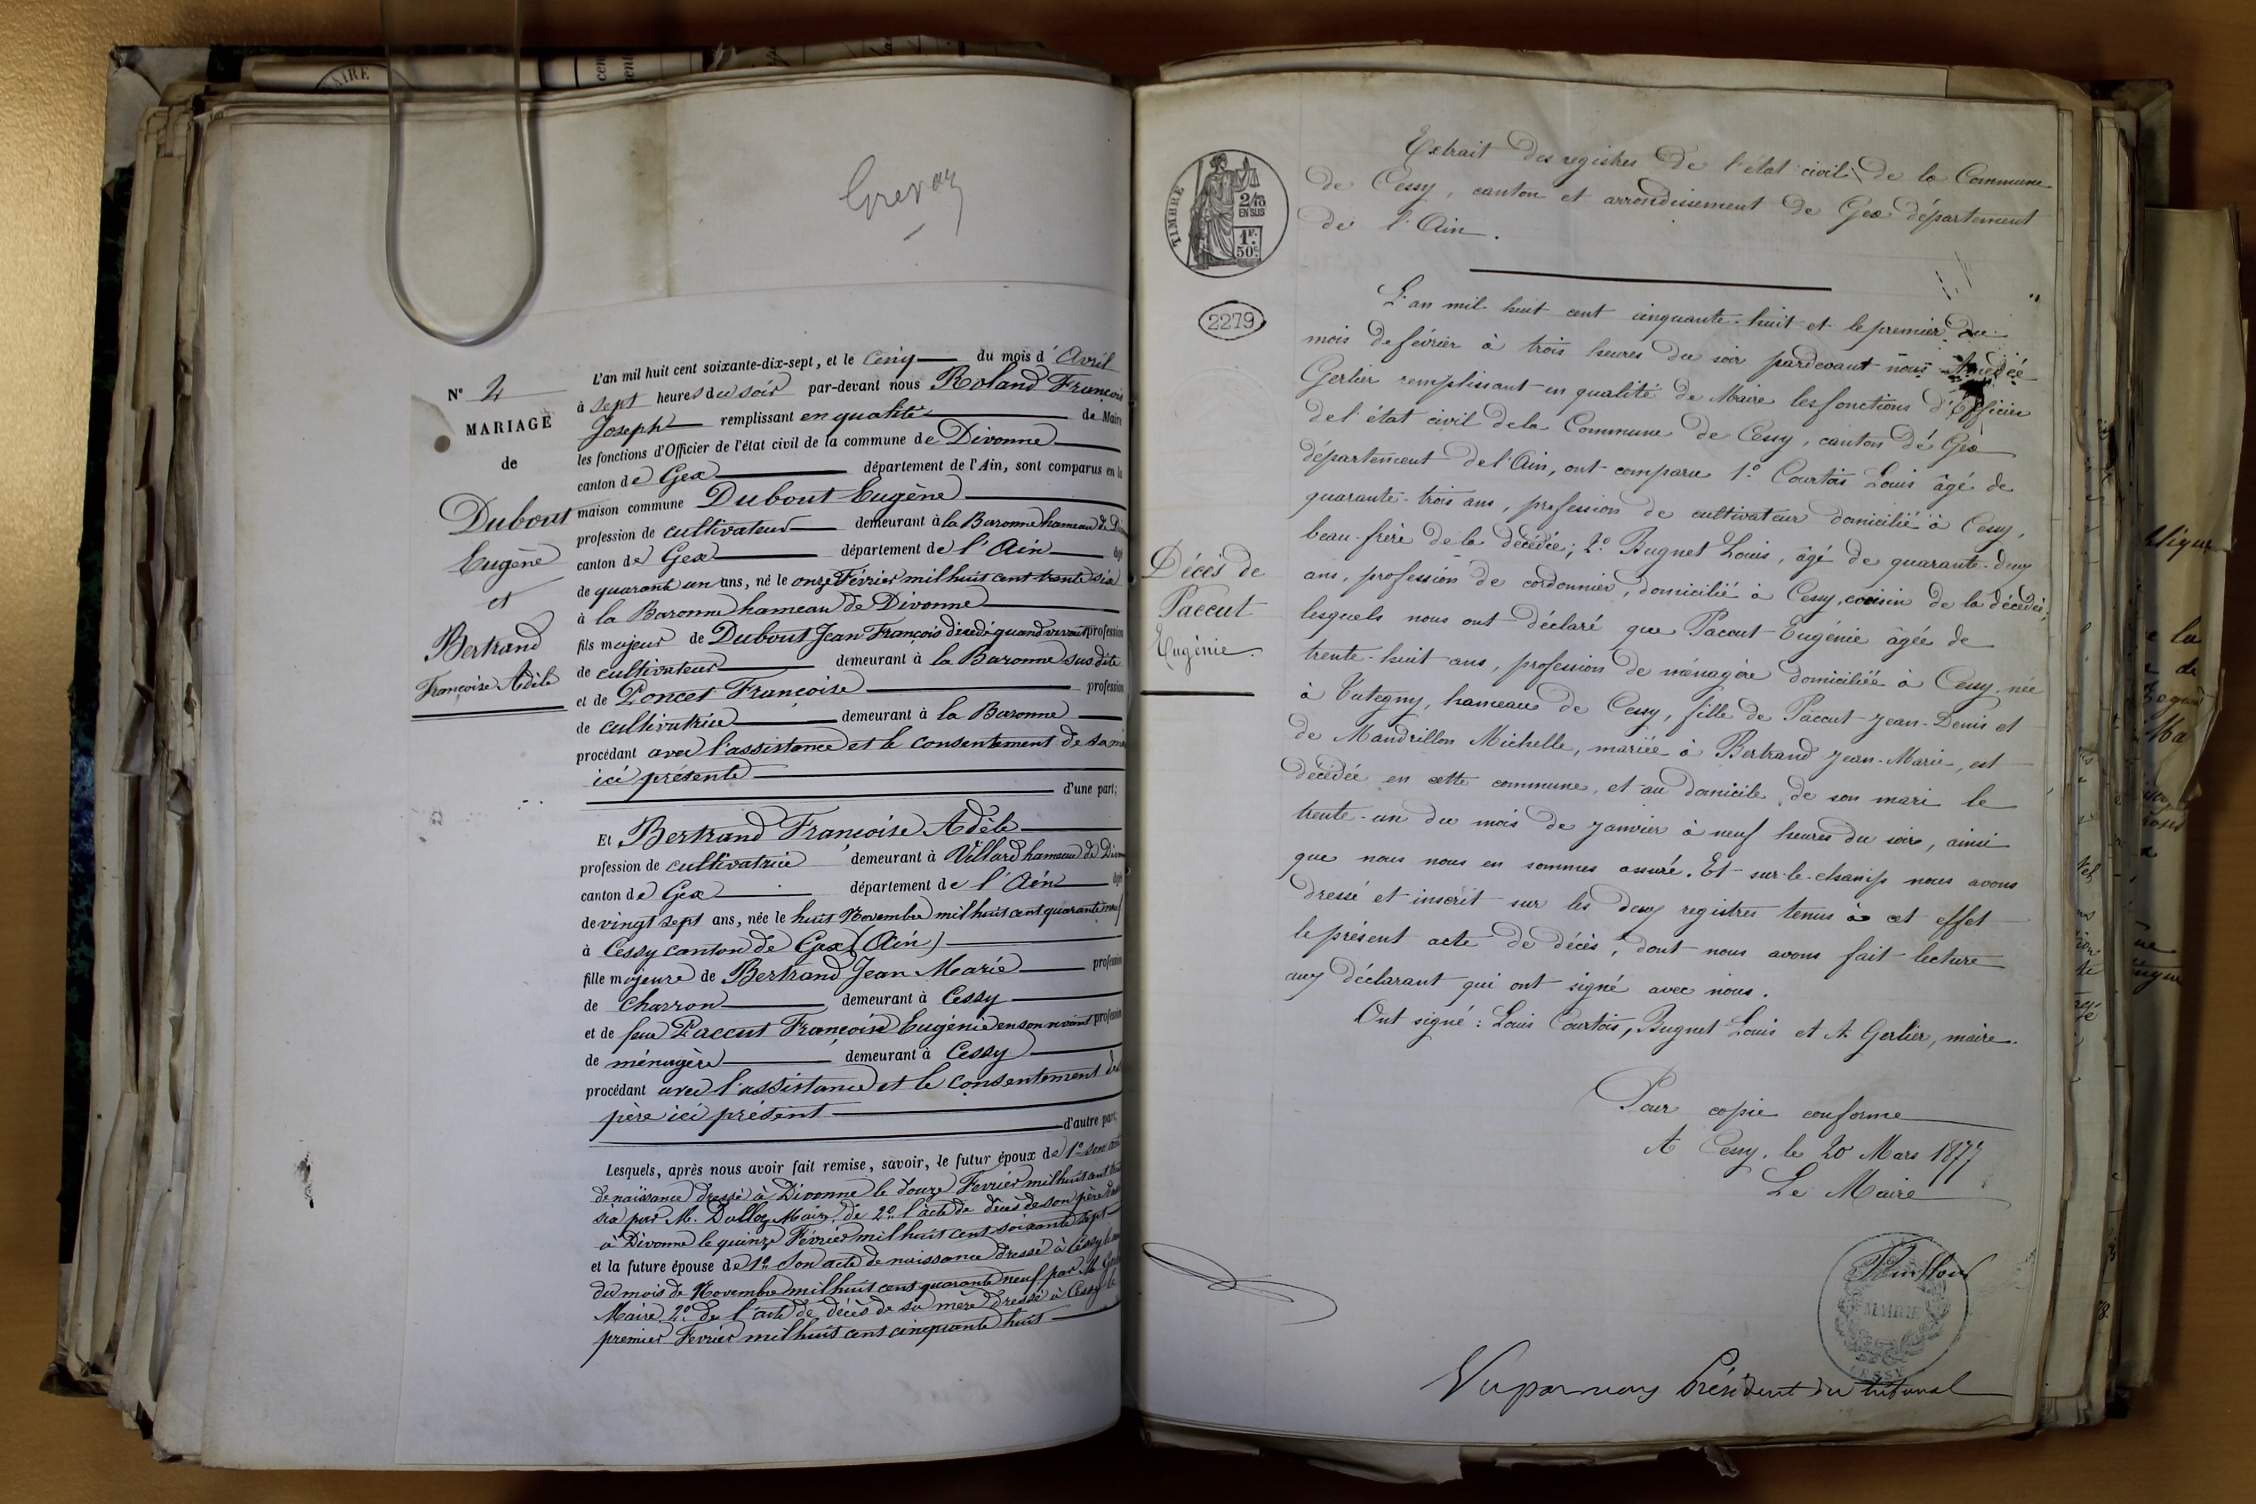 Grevoz
N° 4
MARIAGE
de
Dubout
Eugène
et
Bertrand
Françoise Adèle
L'an mil huit cent soixante-dix-sept, et le cinq du mois d'Avril
à sept heures du soir par-devant nous Roland François
Joseph remplissant en qualité de Maire
les fonctions d'Officier de l'état civil de la commune de Divonne
canton de Gex département de l'Ain, sont comparus en la
maison commune Dubout Eugène
profession de cultivateur demeurant à la Baronne hameau de
canton de Gex département de l'Ain âgé
de quarant un ans, né le onze Février mil huit cent trente six
à la Baronne hameau de Divonne
fils majeur de Dubout Jean François quand vivait profession
de cultivateur demeurant à la Baronne sus dite
et de Poncet Françoise profession
de cultivatrice demeurant à la Baronne
procédant avec l'assistance et le consentement de sa
ici présente
d'une part;
Et Bertrand Françoise Adèle
profession de cultivatrice demeurant à Villard hameau de
canton de Gex département de l'Ain âgée
de vingt sept ans, née le huit Novembre mil huit cent quarante neuf
à Cessy canton de Gex (Ain)
fille majeure de Bertrand Jean Marie profession
de charron demeurant à Cessy
et de feue Paccut Françoise Eugénie en son vivant profession
de ménagère demeurant à Cessy
procédant avec l'assistance et le consentement de
père ici présent
d'autre part.
Lesquels, après nous avoir fait remise, savoir, le futur époux de 1° son acte
de naissance dressé à Divonne le douze Février mil huit cent
six par M. Maire, de 2° l'acte de décès de son père
à Divonne le quinze Février mil huit cent soixante sept
et la future épouse de 1° Son acte de naissance dressé à Cessy le
du mois de Novembre mil huit cent quarante neuf par M.
Maire 2° de l'acte de décès de sa mère dressé à Cessy le
premier Fevrier mil huit cent cinquante huit
TIMBRE
2/10
EN SUS
1F.
50c
2279
Décès de
Paccut
Eugénie.
Extrait des registres de l'état civil de la Commune
de Cessy, canton et arrondissement de Gex département
de l'Ain.
L'an mil huit cent cinquante-huit et le premier du
mois de février à trois heures du soir pardevant nous Amédée
Gerlier remplissant en qualité de Maire les fonctions d'Officier
de l'état civil de la Commune de Cessy, canton de Gex
département de l'Ain, ont comparu 1° Courtois Louis âgé de
quarante-trois ans, profession de cultivateur domicilié à Cessy,
beau-frère de la décédée; 2° Bugnet Louis, âgé de quarante-deux
ans, profession de cordonnier, domicilié à Cessy, cousin de la décédée;
lesquels nous ont déclaré que Paccut Eugénie âgée de
trente-huit ans, profession de ménagère domiciliée à Cessy, née
à Tutegny, hameau de Cessy, fille de Paccut Jean-Denis et
de Mandrillon Michelle, mariée à Bertrand Jean-Marie, est
décédée en cette commune, et au domicile de son mari le
trente-un du mois de janvier à neuf heures du soir, ainsi
que nous nous en sommes assuré. Et sur-le-champ nous avons
dressé et inscrit sur les deux registres tenus à cet effet
le présent acte de décès, dont nous avons fait lecture
aux déclarant qui ont signé avec nous.
Ont signé: Louis Courtois, Bugnet Louis et A. Gerlier, maire.
Pour copie conforme
A Cessy, le 20 Mars 1877
Le Maire
MAIRIE
CESSY
Président du tribunal